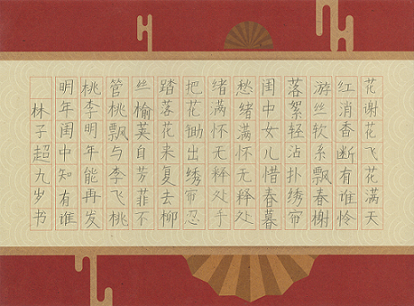 花谢花飞花满天
红消香断有谁怜
游丝软系飘春榭
落絮轻沾扑绣帘
闺中女儿惜春暮
愁绪满怀无释处
绪满怀无释处手
把花锄出绣帘忍
踏落花来复去柳
丝榆荚自芳菲不
管桃飘与李飞桃
桃李明年能再发
明年闺中知有谁
林子超九岁书